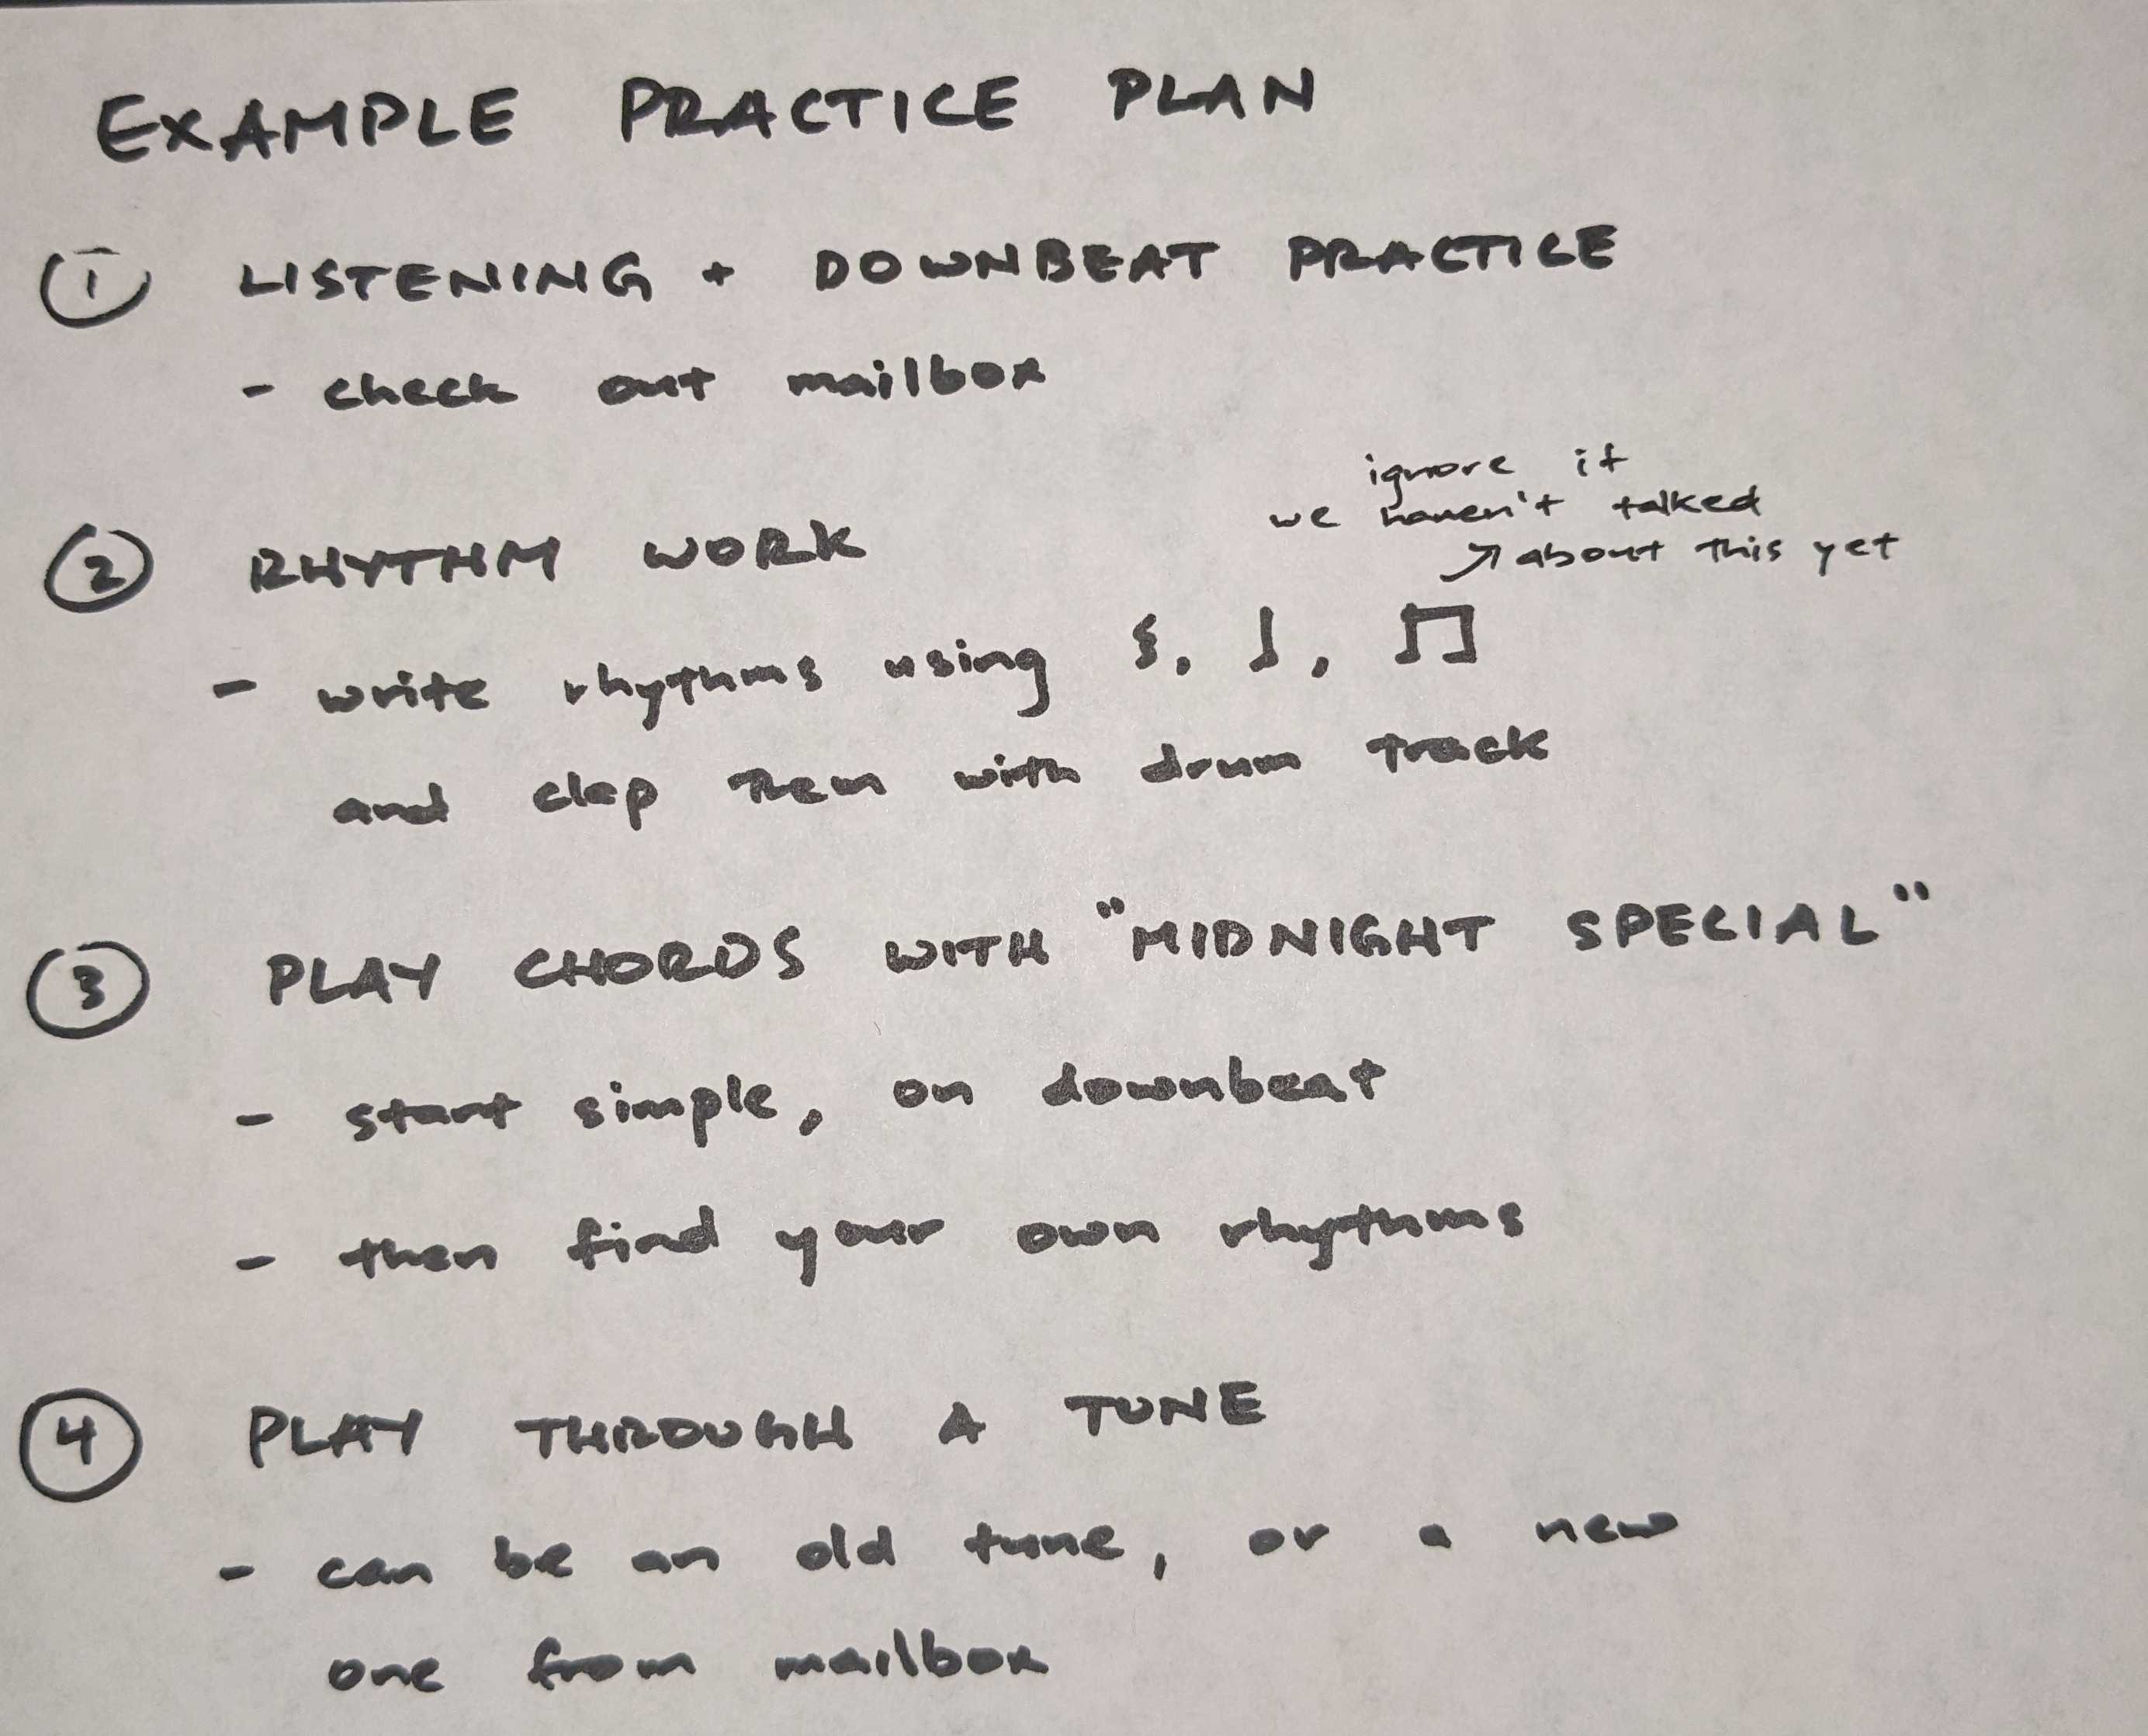 EXAMPLE PRACTICE PLAN
① LISTENING + DOWNBEAT PRACTICE
- check out mailbox
ignore if
we haven't talked
↗ about this yet
② RHYTHM WORK
- write rhythms using 𝄽, ♩, ♫
and clap them with drum track
③ PLAY CHORDS WITH "MIDNIGHT SPECIAL"
- start simple, on downbeat
- then find your own rhythms
④ PLAY THROUGH A TUNE
- can be an old tune, or a new
one from mailbox